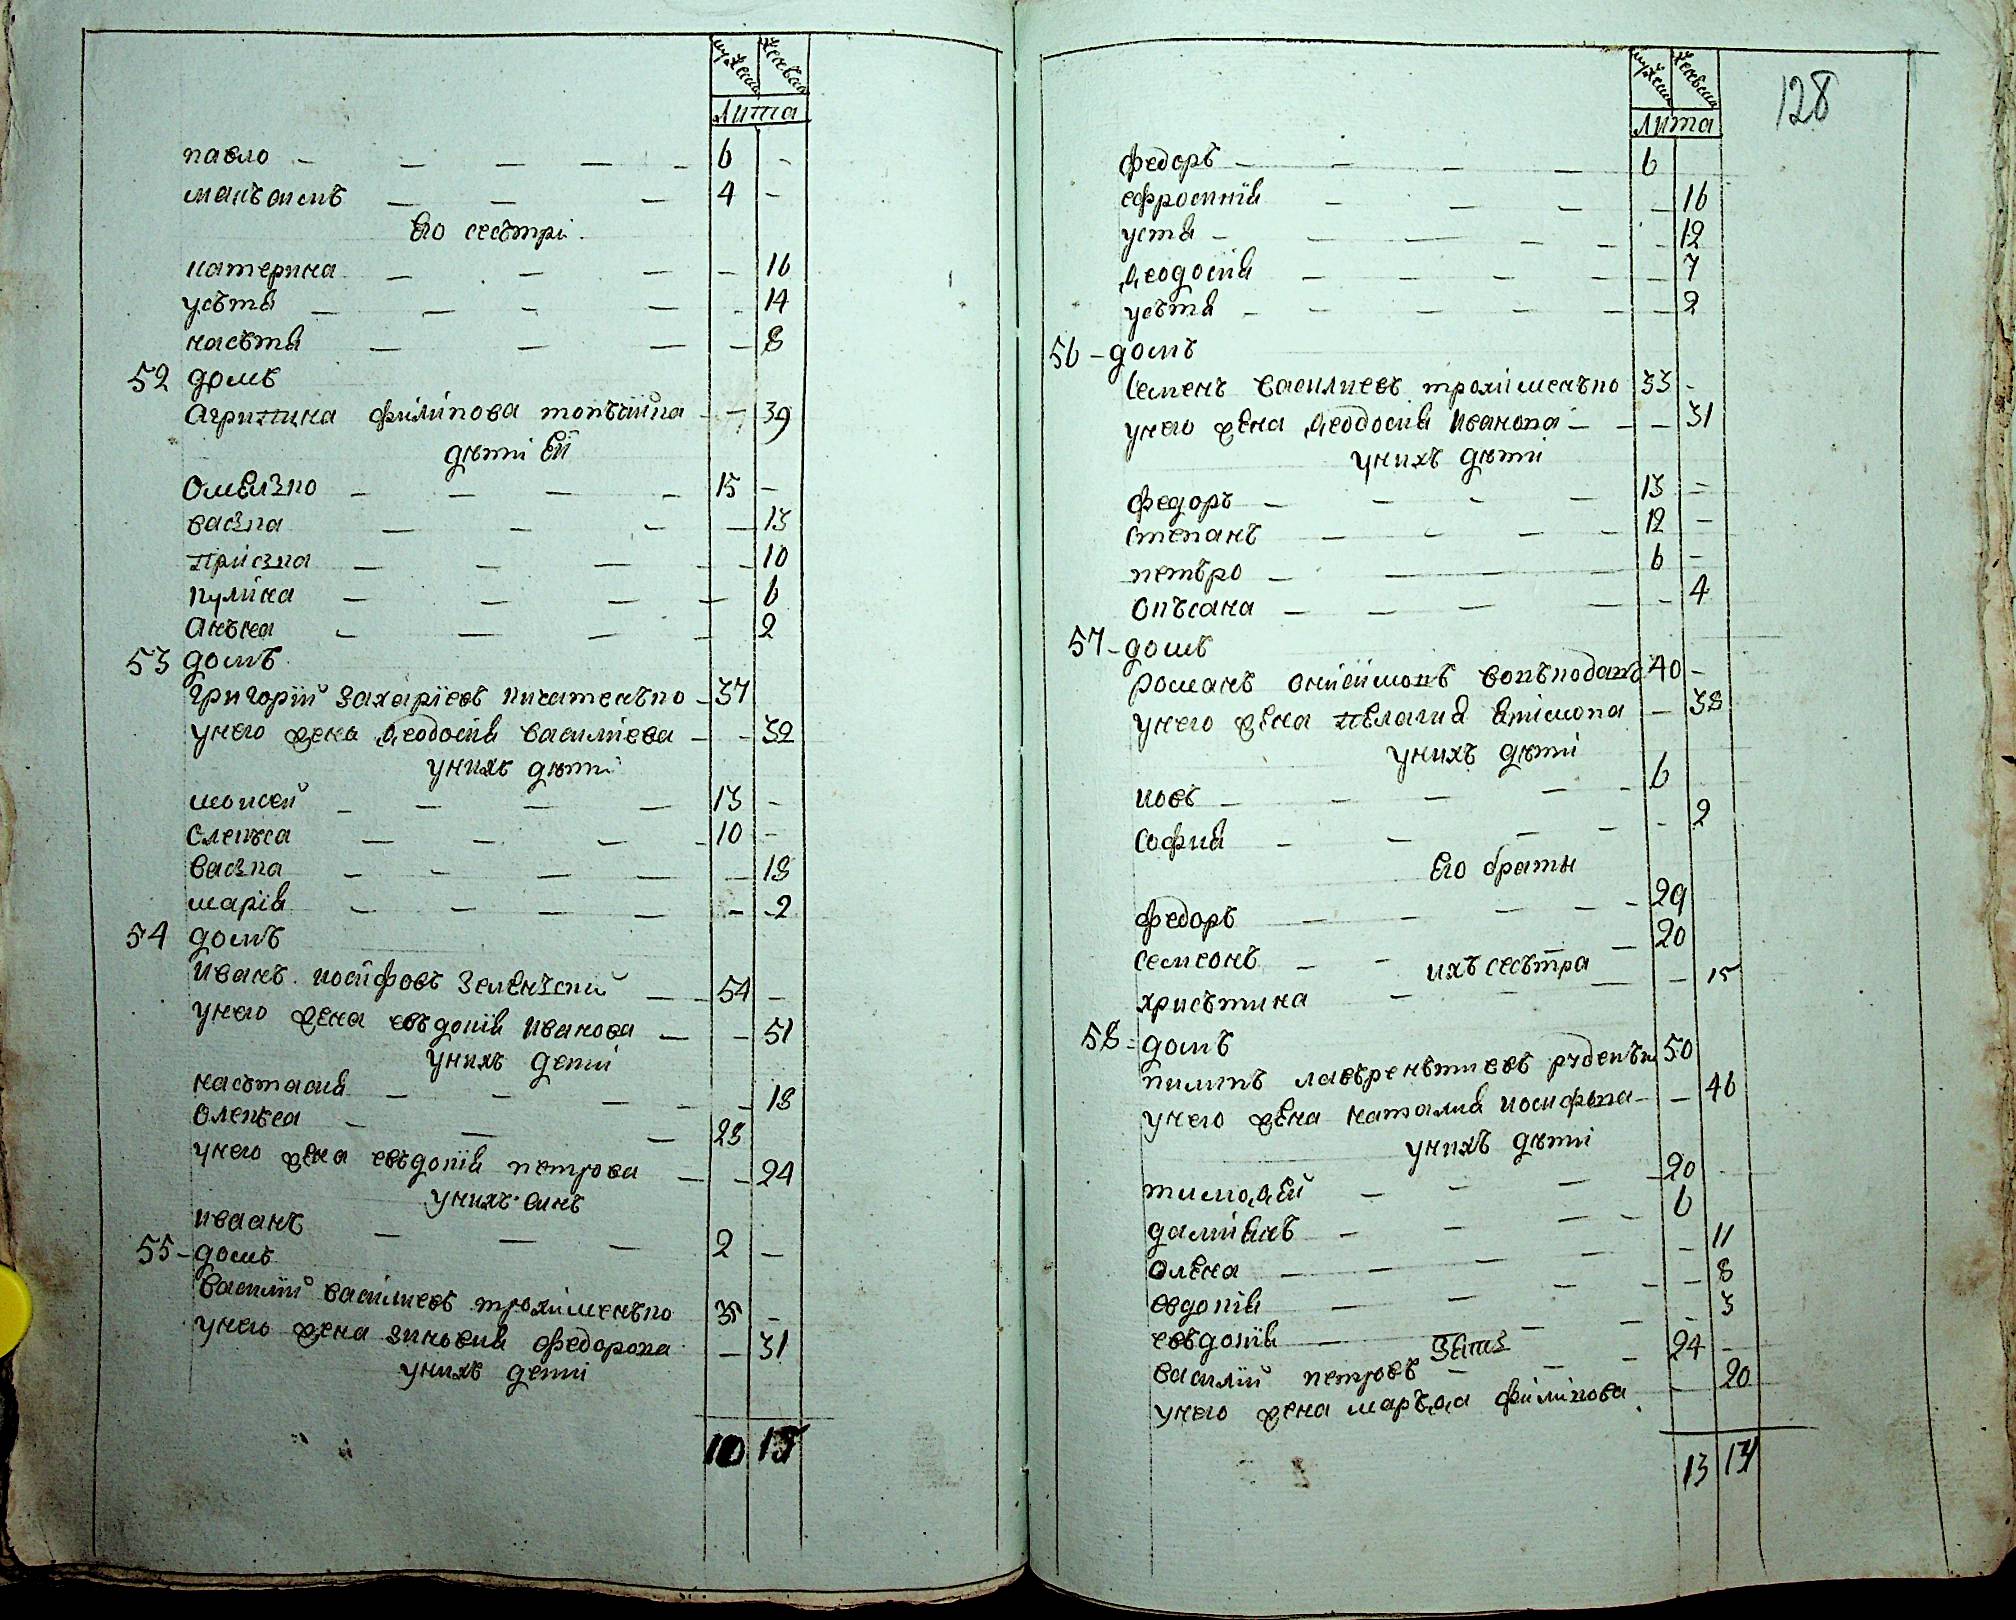 мужеска женъска
лита
павло 6
макъсимъ 4
Его сесътрі
катерина 16
усътя 14
насътя 8
52 домъ
Агрипина филіпова топъчійка 39
дѣти Ей
Омелко 15
васка 13
пріська 10
кулина 6
Анъна 2
53 домъ
григорій захаріевъ Кичатенъко 37
унего жена ѳеодосія василіева 32
унихъ дѣти
моисей 13
Олекъса 10
васка 18
марія 2
54 домъ
Иванъ иосифовъ Зеленъский 54
унего жена евъдокія Иванова 51
унихъ дети
насътасия 18
Олекъса 23
унего жена евъдокія петрова 24
унихъ синъ
иваанъ 2
55 домъ
Василий василиевъ трохименъко 35
унего жена зиновия федорова 31
унихъ дети
10 15
128
мужеска женъска
лита
федоръ 6
ефросинія 16
устя 12
ѳеодосія 7
усътя 2
56 домъ
Семенъ василиевъ трохименъко 33
унего жена ѳеодосия Иванова 31
унихъ дѣти
федоръ 13
степанъ 12
петъро 6
Окъсана 4
57 домъ
романъ онисимовъ вовъкодавъ 40
унего жена пелагия 38
унихъ дѣти
иовъ 6
София 2
Его браты
федоръ 29
семеонъ 20
ихъ сесътра
хрисътина 15
58 домъ
пилипъ лавъренътиевъ руденъко 50
унего жена наталия иосифова 46
унихъ дѣти
тимоѳей 20
даміянъ 6
Олена 11
евдокія 8
евъдокія 3
Зять
василий петровъ 24
унего жена маръѳа филіпова 20
13 14